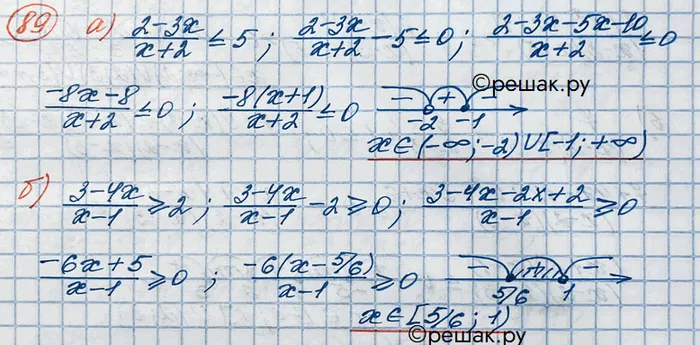 89 а) (2-3x)/(x+2) ≤ 5 ; (2-3x)/(x+2) - 5 ≤ 0 ; (2-3x-5x-10)/(x+2) ≤ 0
(-8x-8)/(x+2) ≤ 0 ; (-8(x+1))/(x+2) ≤ 0 - + -
©решак.ру
-2 -1
x ∈ (-∞; -2) ∪ [-1; +∞)
б) (3-4x)/(x-1) ≥ 2 ; (3-4x)/(x-1) - 2 ≥ 0 ; (3-4x-2x+2)/(x-1) ≥ 0
(-6x+5)/(x-1) ≥ 0 ; (-6(x-5/6))/(x-1) ≥ 0 - + -
5/6 1
x ∈ [5/6 ; 1)
©решак.ру